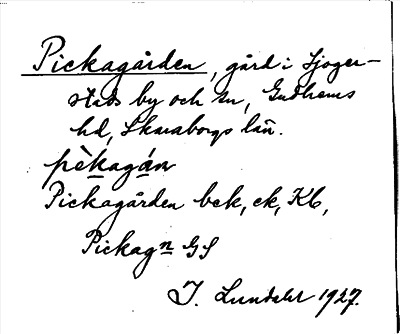 Pickagården, gård i Sjoger-
stads by och sn, Gudhems
hd, Skaraborgs län.
pèkagán
Pickagården bek, ek, Kb,
Pickagn GS
J. Lundahl 1927.